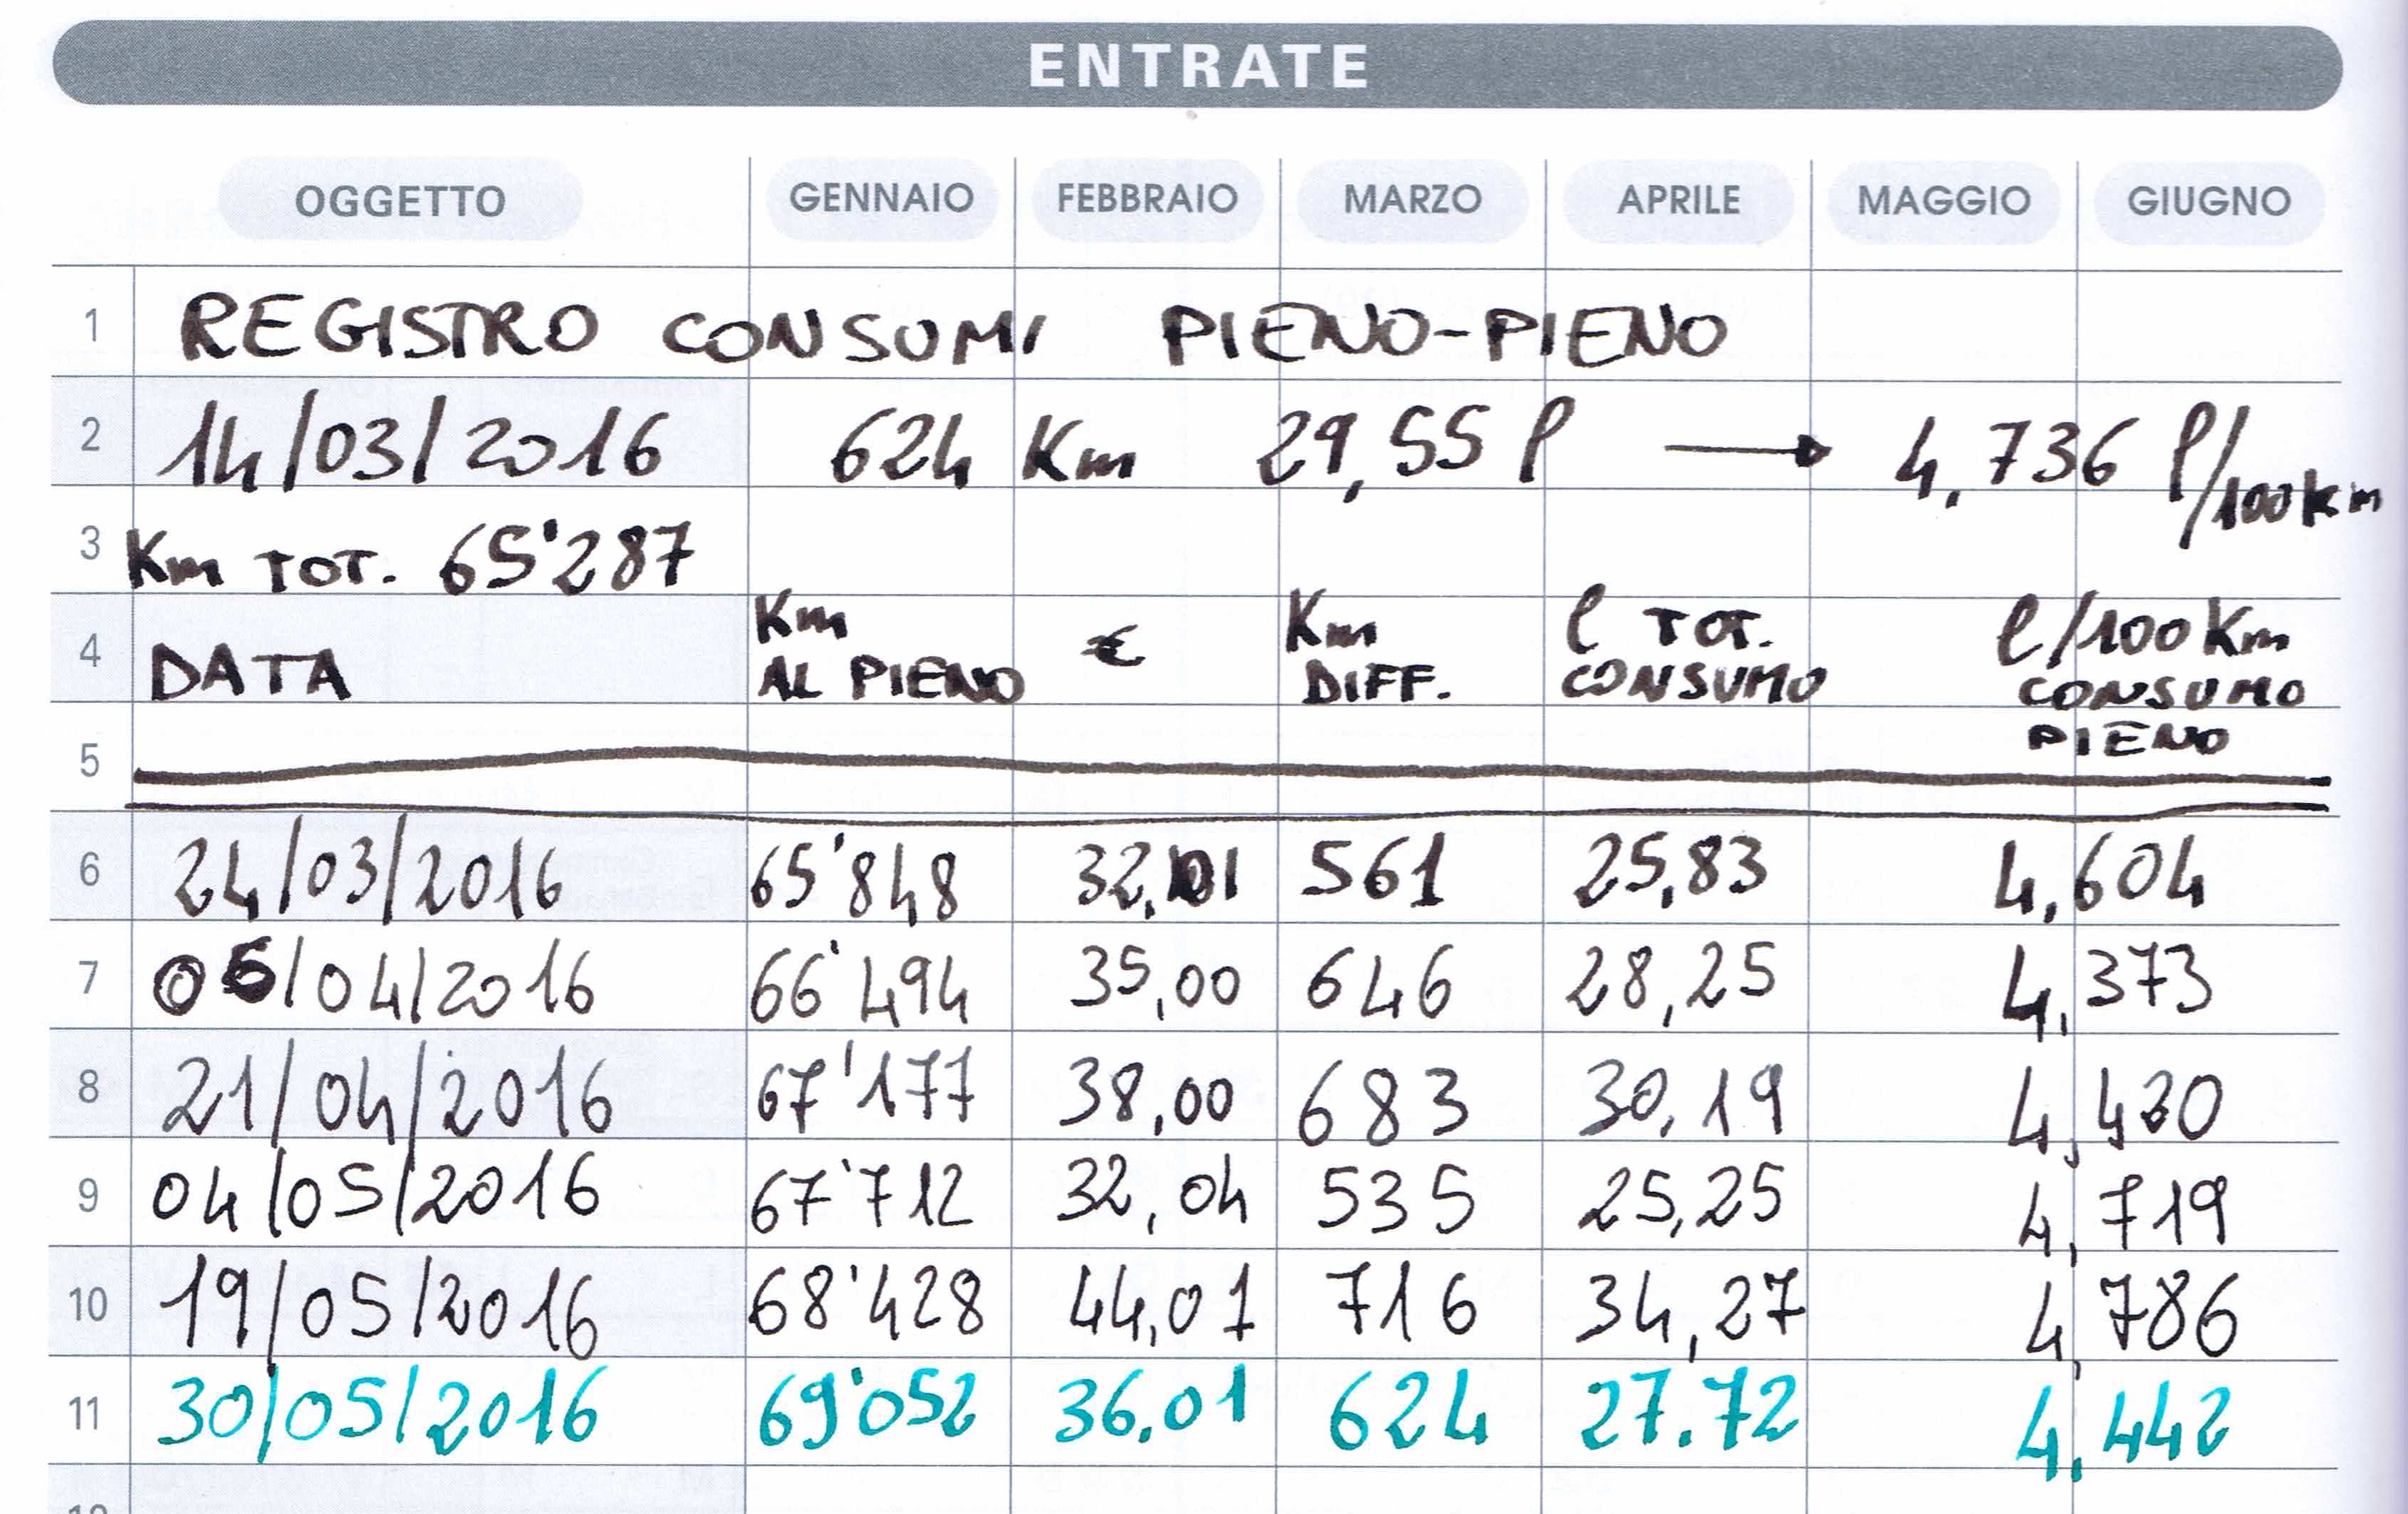 ENTRATE
OGGETTO GENNAIO FEBBRAIO MARZO APRILE MAGGIO GIUGNO
1 REGISTRO CONSUMI PIENO-PIENO
2 14/03/2016 624 Km 29,55 l → 4,736 l/100km
3 Km TOT. 65'287
4 DATA Km AL PIENO € Km DIFF. l TOT. CONSUMO l/100Km CONSUMO PIENO
5
6 24/03/2016 65'848 32,01 561 25,83 4,604
7 06/04/2016 66'494 35,00 646 28,25 4,373
8 21/04/2016 67'177 38,00 683 30,19 4,420
9 04/05/2016 67'712 32,04 535 25,25 4,719
10 19/05/2016 68'428 44,01 716 34,27 4,786
11 30/05/2016 69'052 36.01 624 27.72 4,442